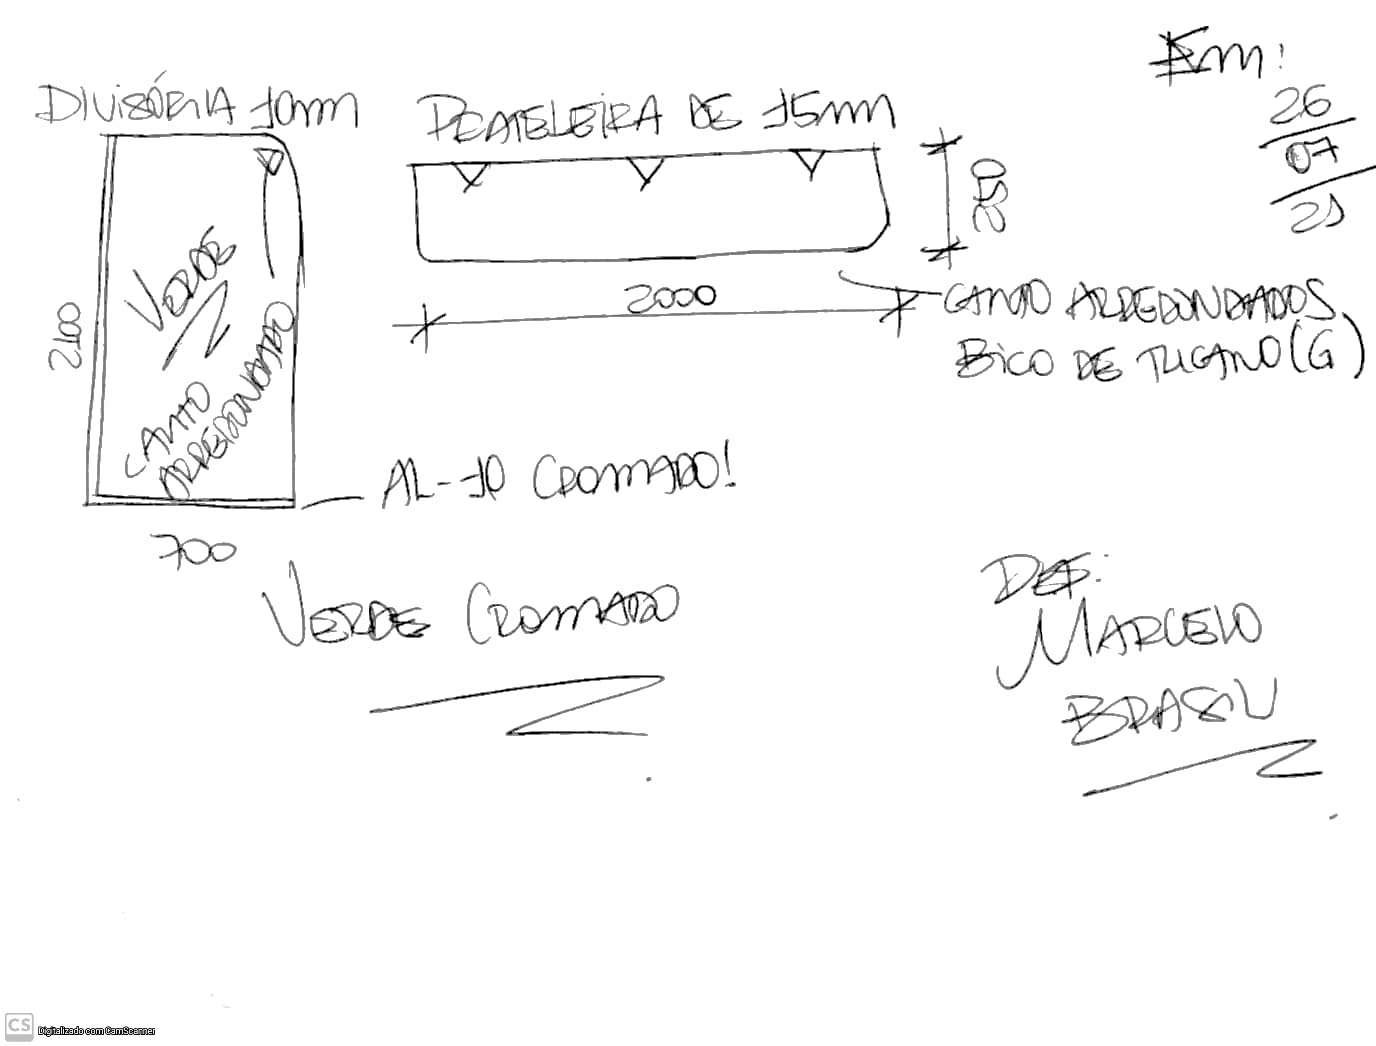 Em:
26
07
21
DIVISÓRIA 10mm
PRATELEIRA DE 15mm
250
2000
CANTO ARREDONDADOS
BICO DE TUCANO (G)
2100
VERDE
CANTO
ARREDONDADO
700
AL-10 CROMADO!
VERDE CROMADO
MARCELO
BRASIL
CS
Digitalizado com CamScanner